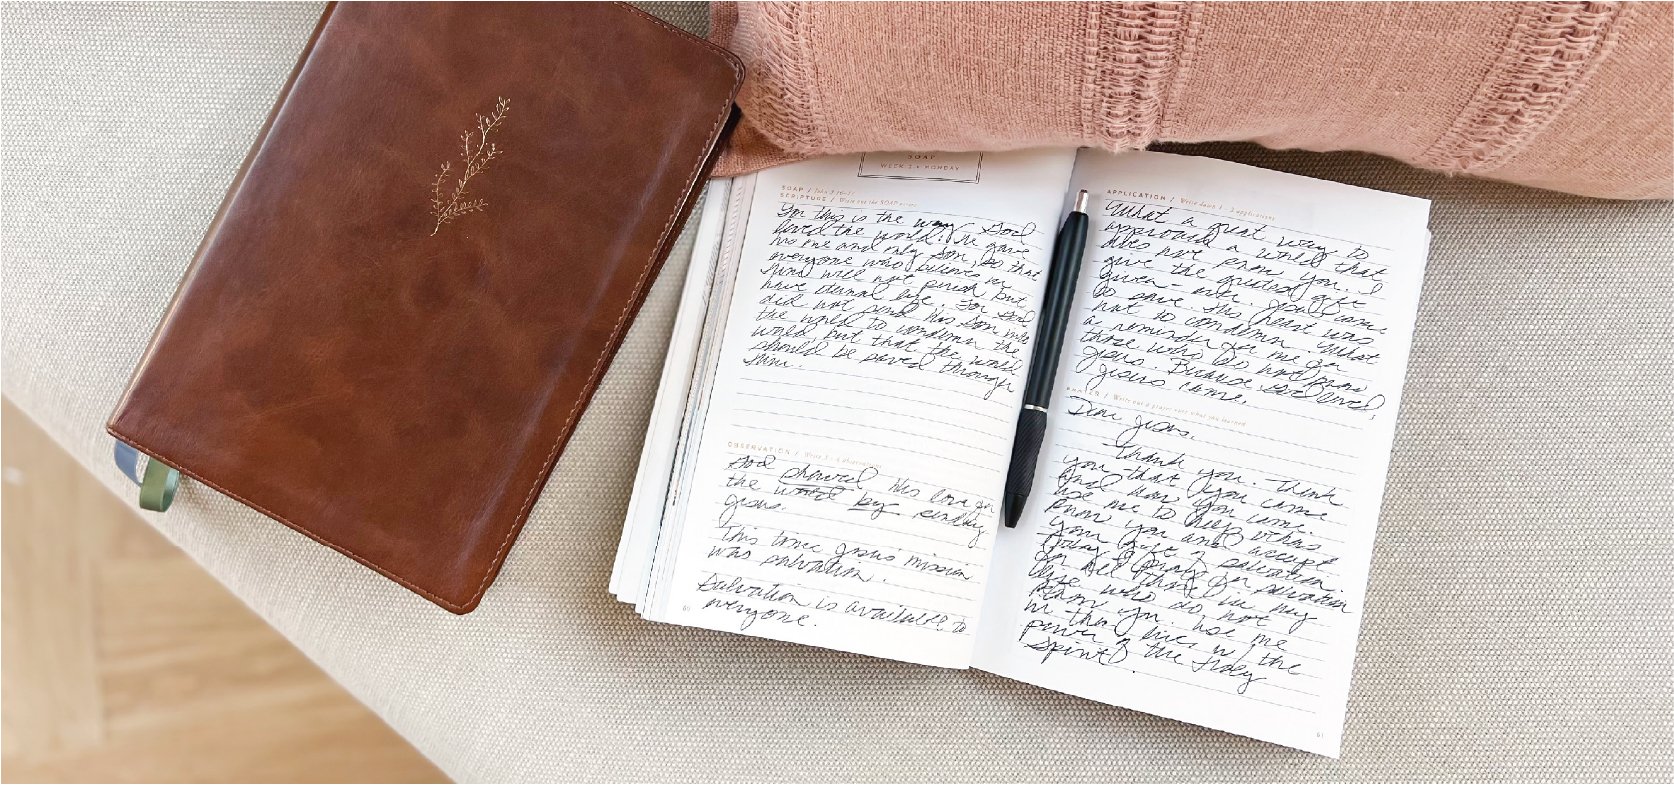 SOAP
WEEK 2 • MONDAY
SOAP / John 3:16-17
SCRIPTURE / Write out the SOAP verses
For this is the way God
loved the world: He gave
his one and only Son, so that
everyone who believes in
him will not perish but
have eternal life. For God
did not send his Son into
the world to condemn the
world but that the world
should be saved through
him.
OBSERVATION / Write 3 - 4 observations
God showed his love for
the world by sending
Jesus.
This time Jesus' mission
was salvation.
Salvation is available to
everyone.
60
APPLICATION / Write down 1 - 2 applications
What a great way to
approach a world that
does not know you.
give the greatest gift
given - ever. Jesus came
to save. His heart was
not to condemn. What
a reminder for me for
those who do not know
Jesus. Because God loved,
Jesus came.
PRAYER / Write out a prayer over what you learned
Dear Jesus,
Thank you. Thank
you that you came
and how you came.
Use me to help others
know you and accept
your gift of salvation
Today I pray for salvation
for all those in my
life who do not
know you. Use me
in their lives in the
power of the Holy
Spirit.
61